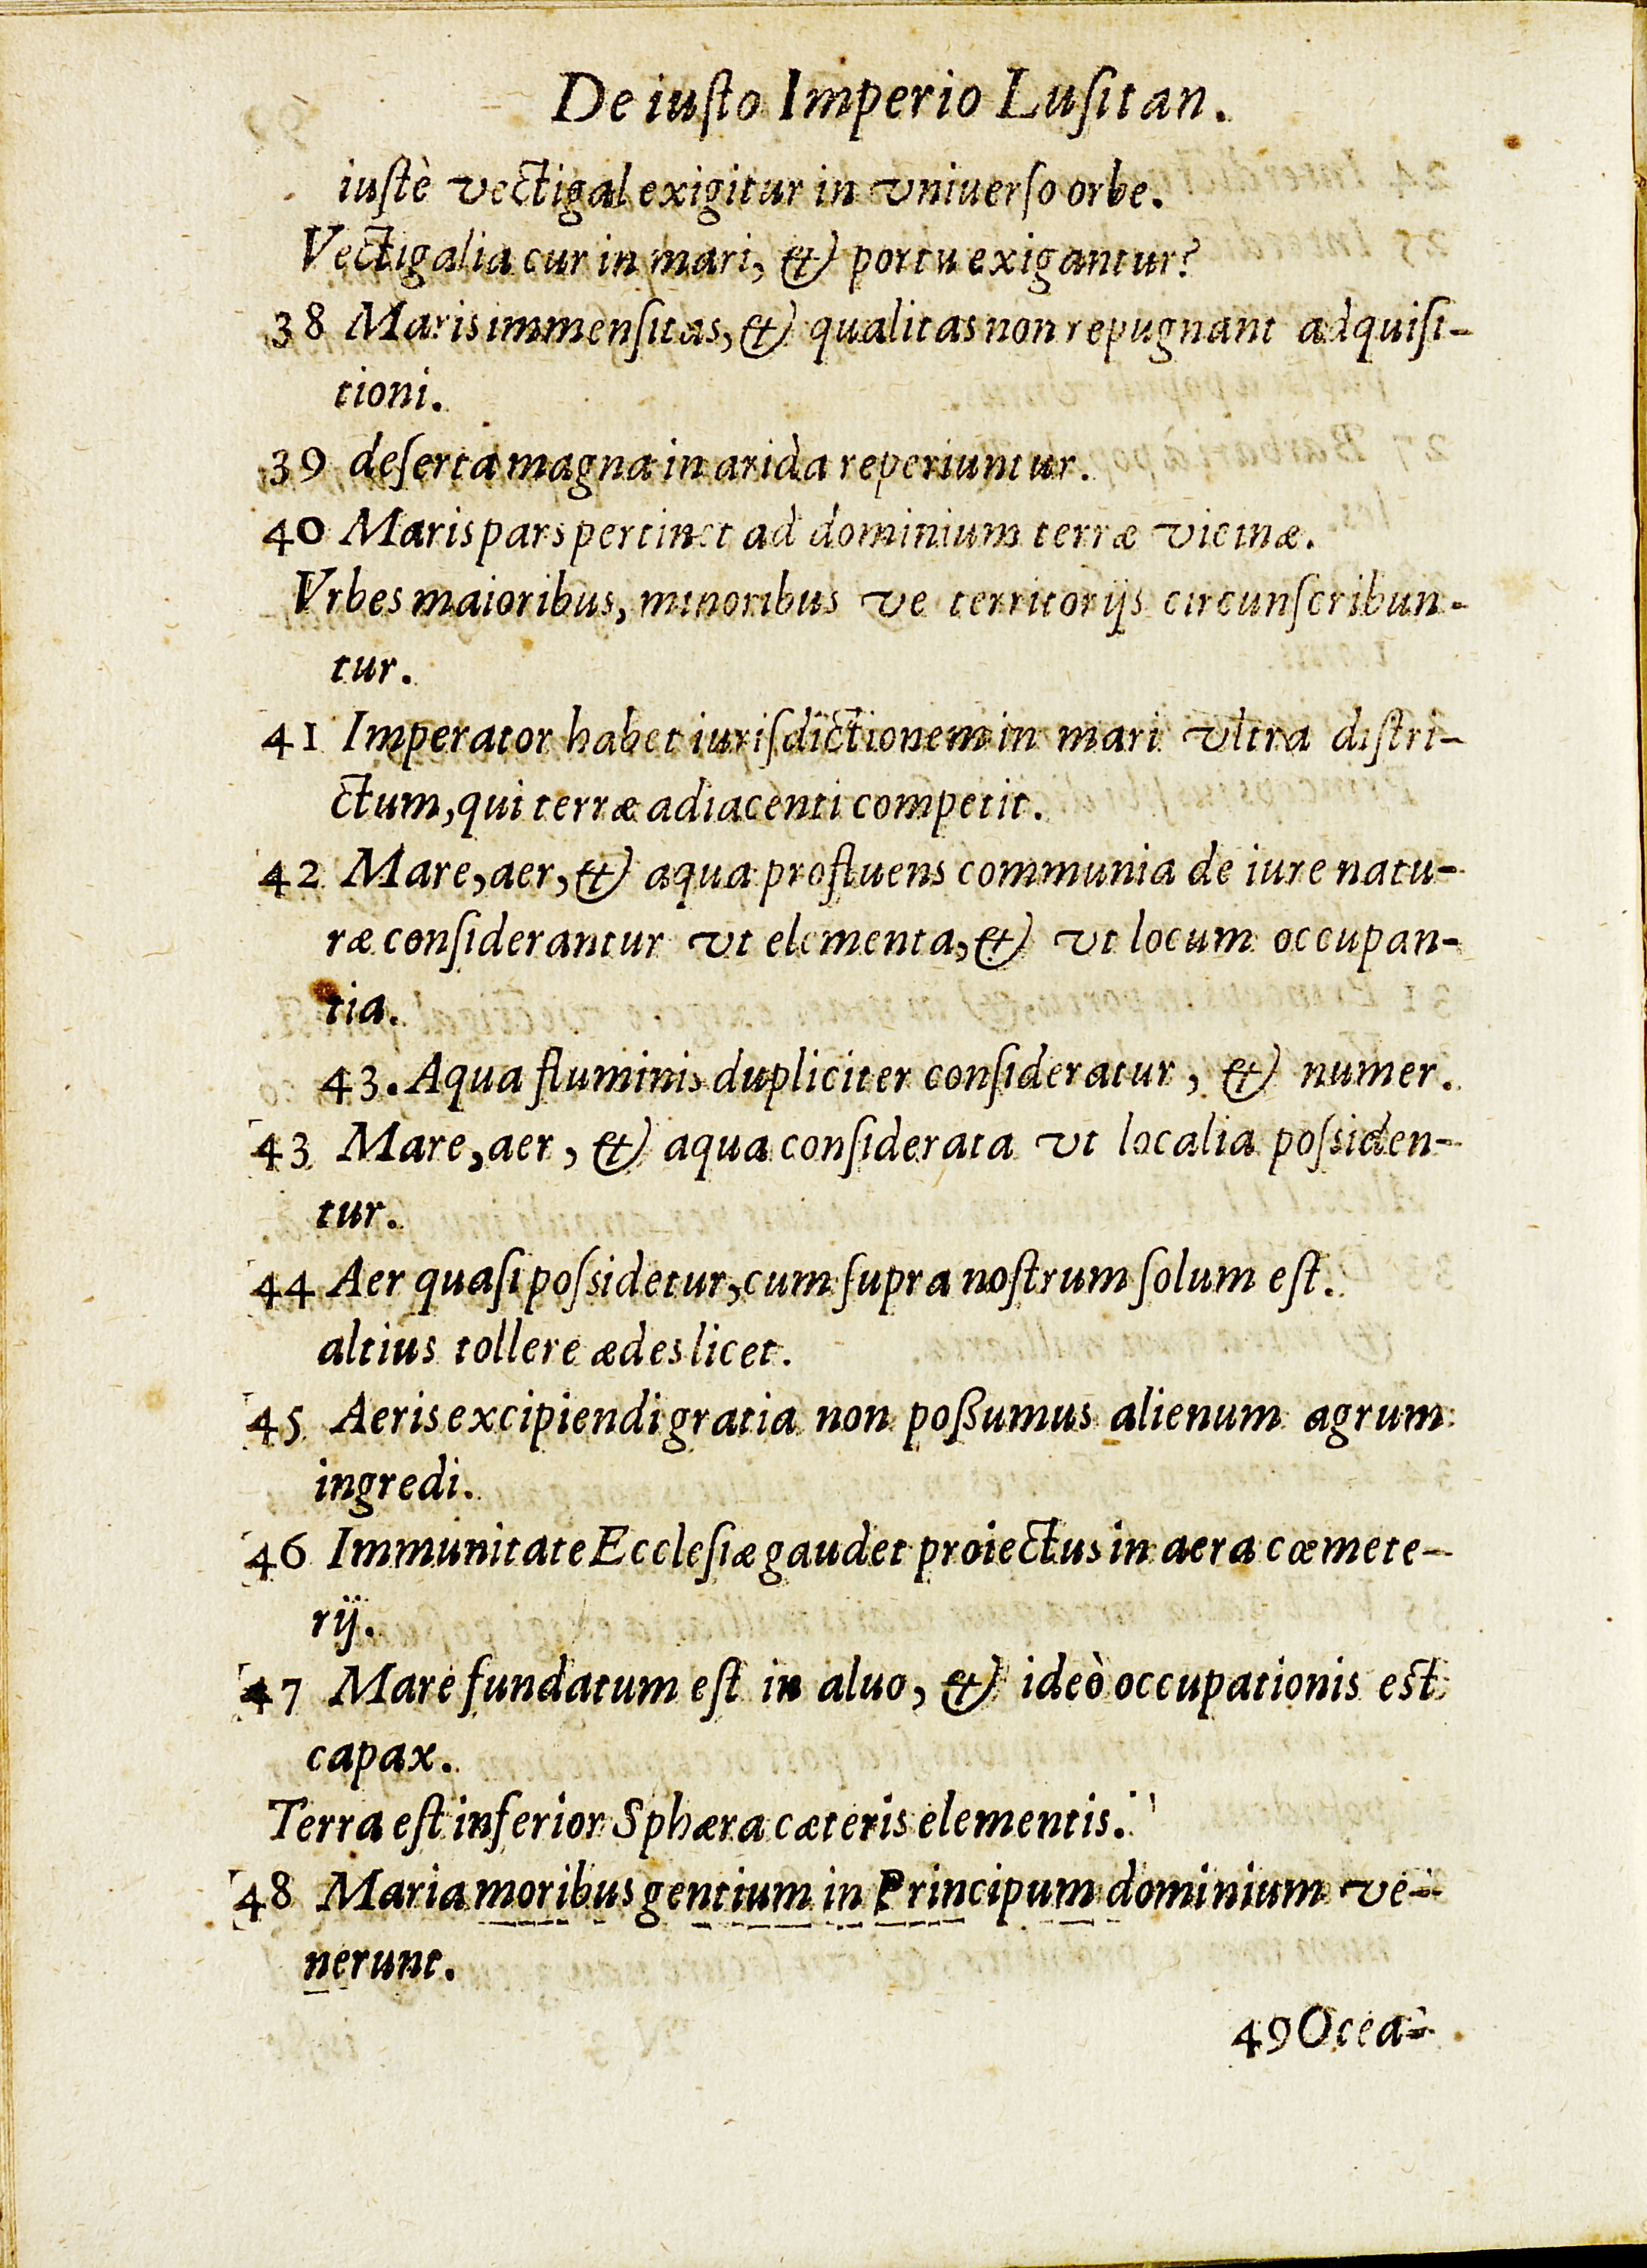 De iuſto Imperio Luſitan.
iuſtè vectigal exigitur in vniuerſo orbe.
Vectigalia cur in mari, & portu exigantur?
38 Maris immenſitas, & qualitas non repugnant adquiſi-
tioni.
39 deſerta magna in arida reperiuntur.
40 Maris pars pertinet ad dominium terræ vicinæ.
Vrbes maioribus, minoribus ve territorijs circunſcribun-
tur.
41 Imperator habet iuriſdictionem in mari vltra diſtri-
ctum, qui terræ adiacenti competit.
42 Mare, aer, & aqua profluens communia de iure natu-
ræ conſiderantur vt elementa, & vt locum occupan-
tia.
43. Aqua fluminis dupliciter conſideratur, & numer.
43 Mare, aer, & aqua conſiderata vt localia poſsiden-
tur.
44 Aer quaſi poſsidetur, cum ſupra noſtrum ſolum eſt.
altius tollere ædes licet.
45 Aeris excipiendi gratia non poßumus alienum agrum
ingredi.
46 Immunitate Eccleſiæ gaudet proiectus in aera cœmete-
rij.
47 Mare fundatum eſt in aluo, & ideò occupationis eſt
capax.
Terra eſt inferior Sphæra cæteris elementis.
48 Maria moribus gentium in Principum dominium ve-
nerunt.
49 Ocea-